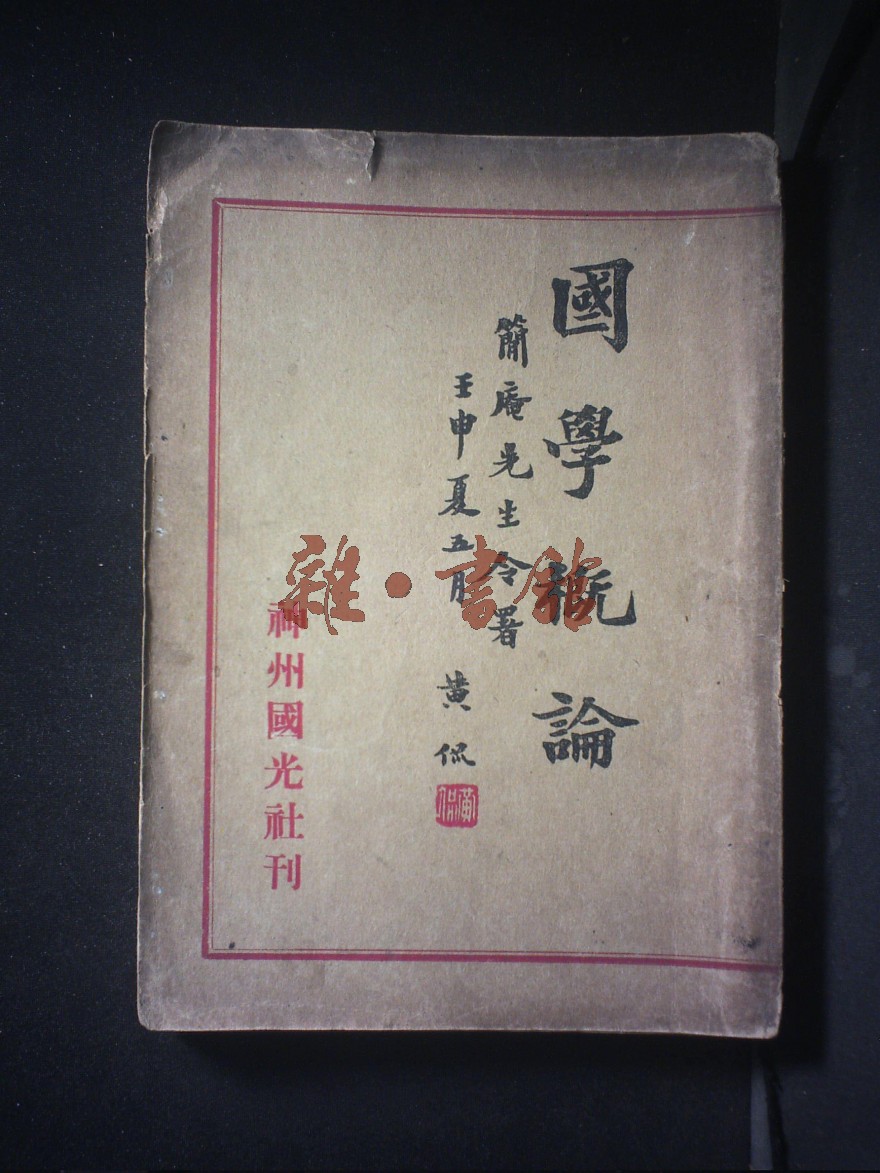 國學概論
簡庵先生令署
壬申夏五月 黃侃
黃侃
神州國光社刊
雜·書館